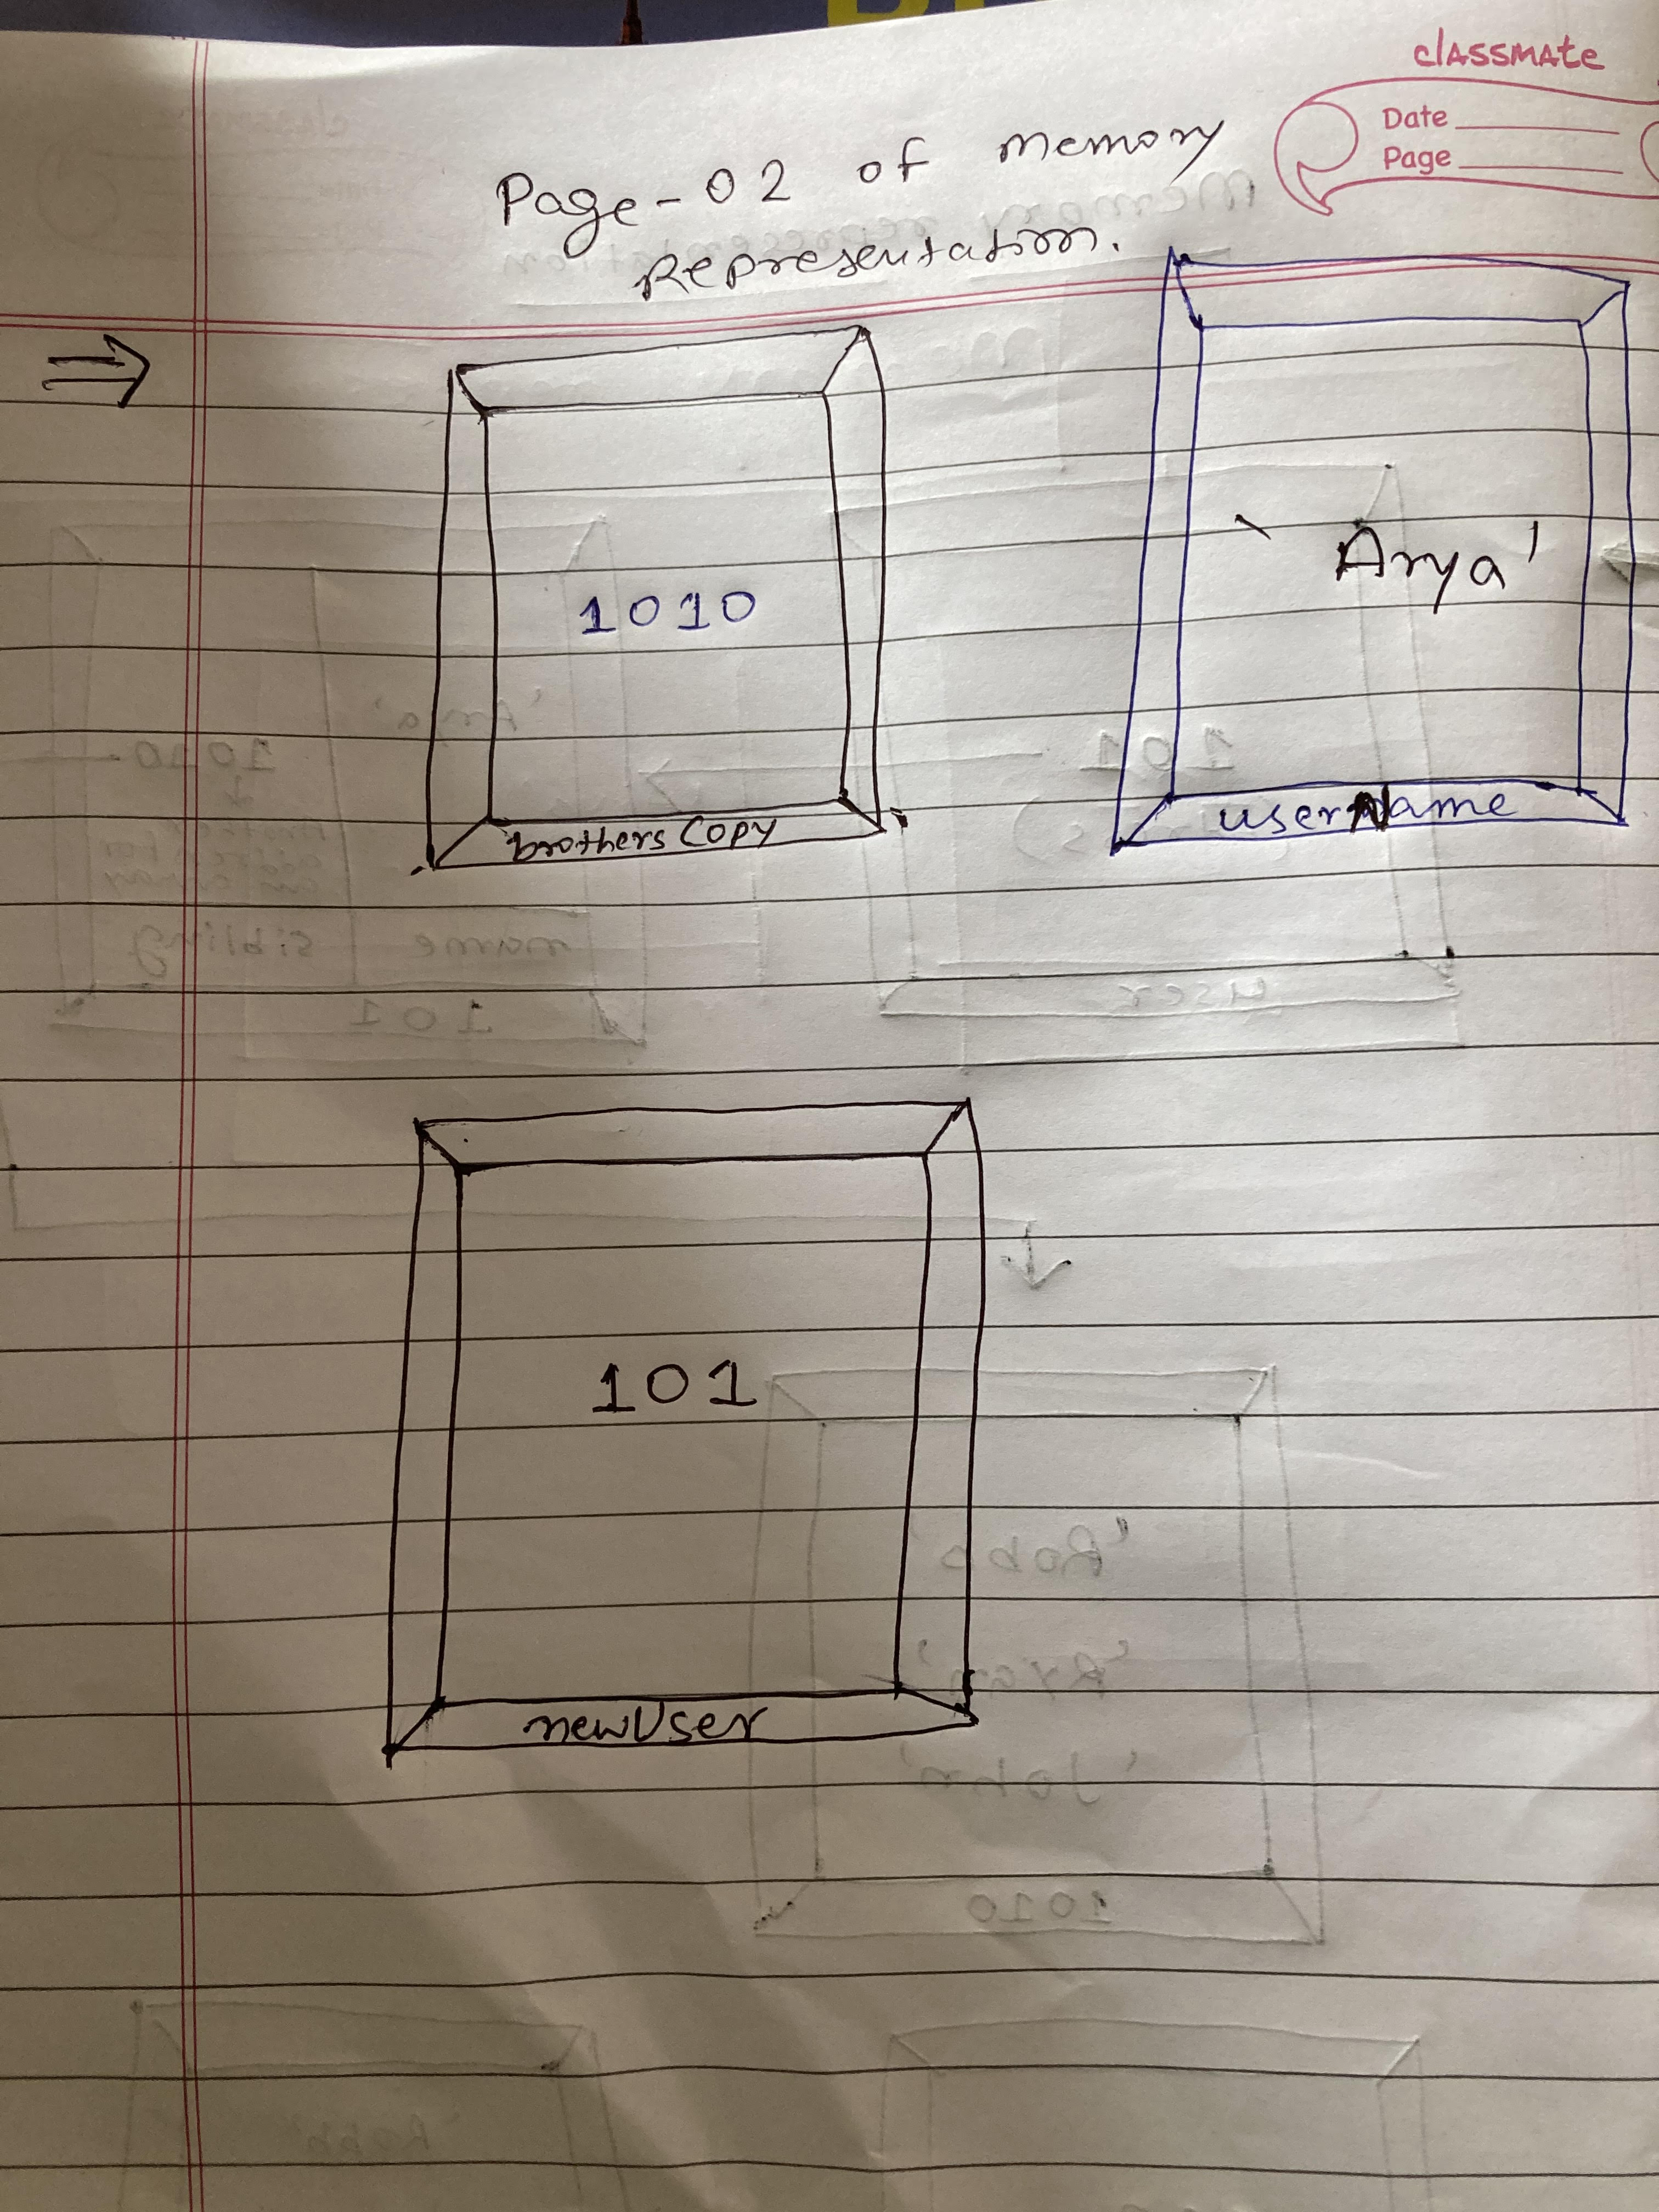 classmate
Date
Page
Page-02 of memory
Representation.
1010
brothersCopy
' Arya'
userName
101
newUser